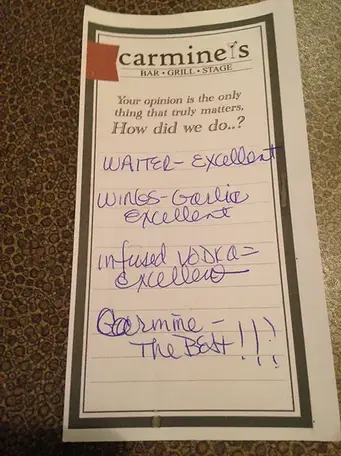 carmine's
BAR • GRILL • STAGE
Your opinion is the only
thing that truly matters,
How did we do..?
WAITER- Excellent
WINGS-Garlic
Excellent
infused VODKA=
Excellent
Carmine -
The Best!!!